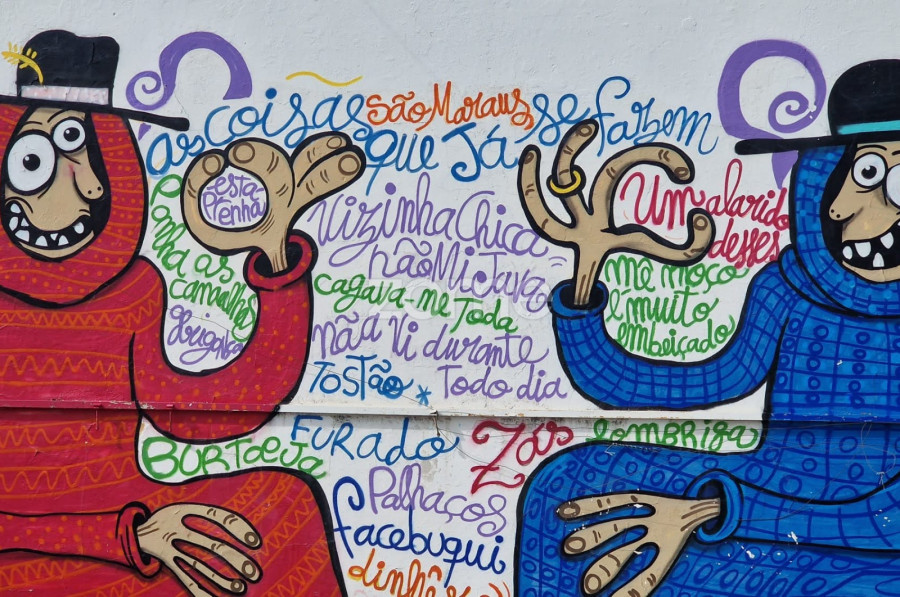 as coisas são Maraus, se fazem
que Já
esta Prenha
Vizinha Chica
não Mijava
cagava-me Toda
não Vi durante
Tostão * Todo dia
Um alarido
desses
mê moço
é muito
embeiçado
as
camualhas
BURTOEJA
FURADO
Zós
lombriga
Palhaços
facebuqui